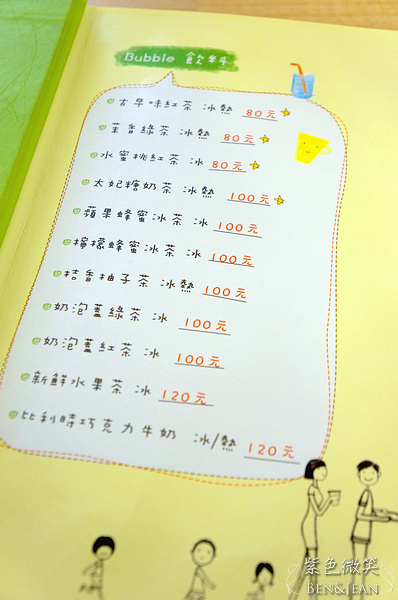 Bubble 飲料
古早味紅茶 冰熱 80元
茉香綠茶 冰熱 80元
水蜜桃紅茶 冰熱 80元
太妃糖奶茶 冰熱 100元
蘋果蜂蜜冰茶 冰 100元
檸檬蜂蜜冰茶 冰 100元
桔香柚子茶 冰熱 100元
奶泡蓋綠茶 冰 100元
奶泡蓋紅茶 冰 100元
新鮮水果茶 冰 120元
比利時巧克力牛奶 冰/熱 120元
紫色微笑
BEN&JEAN